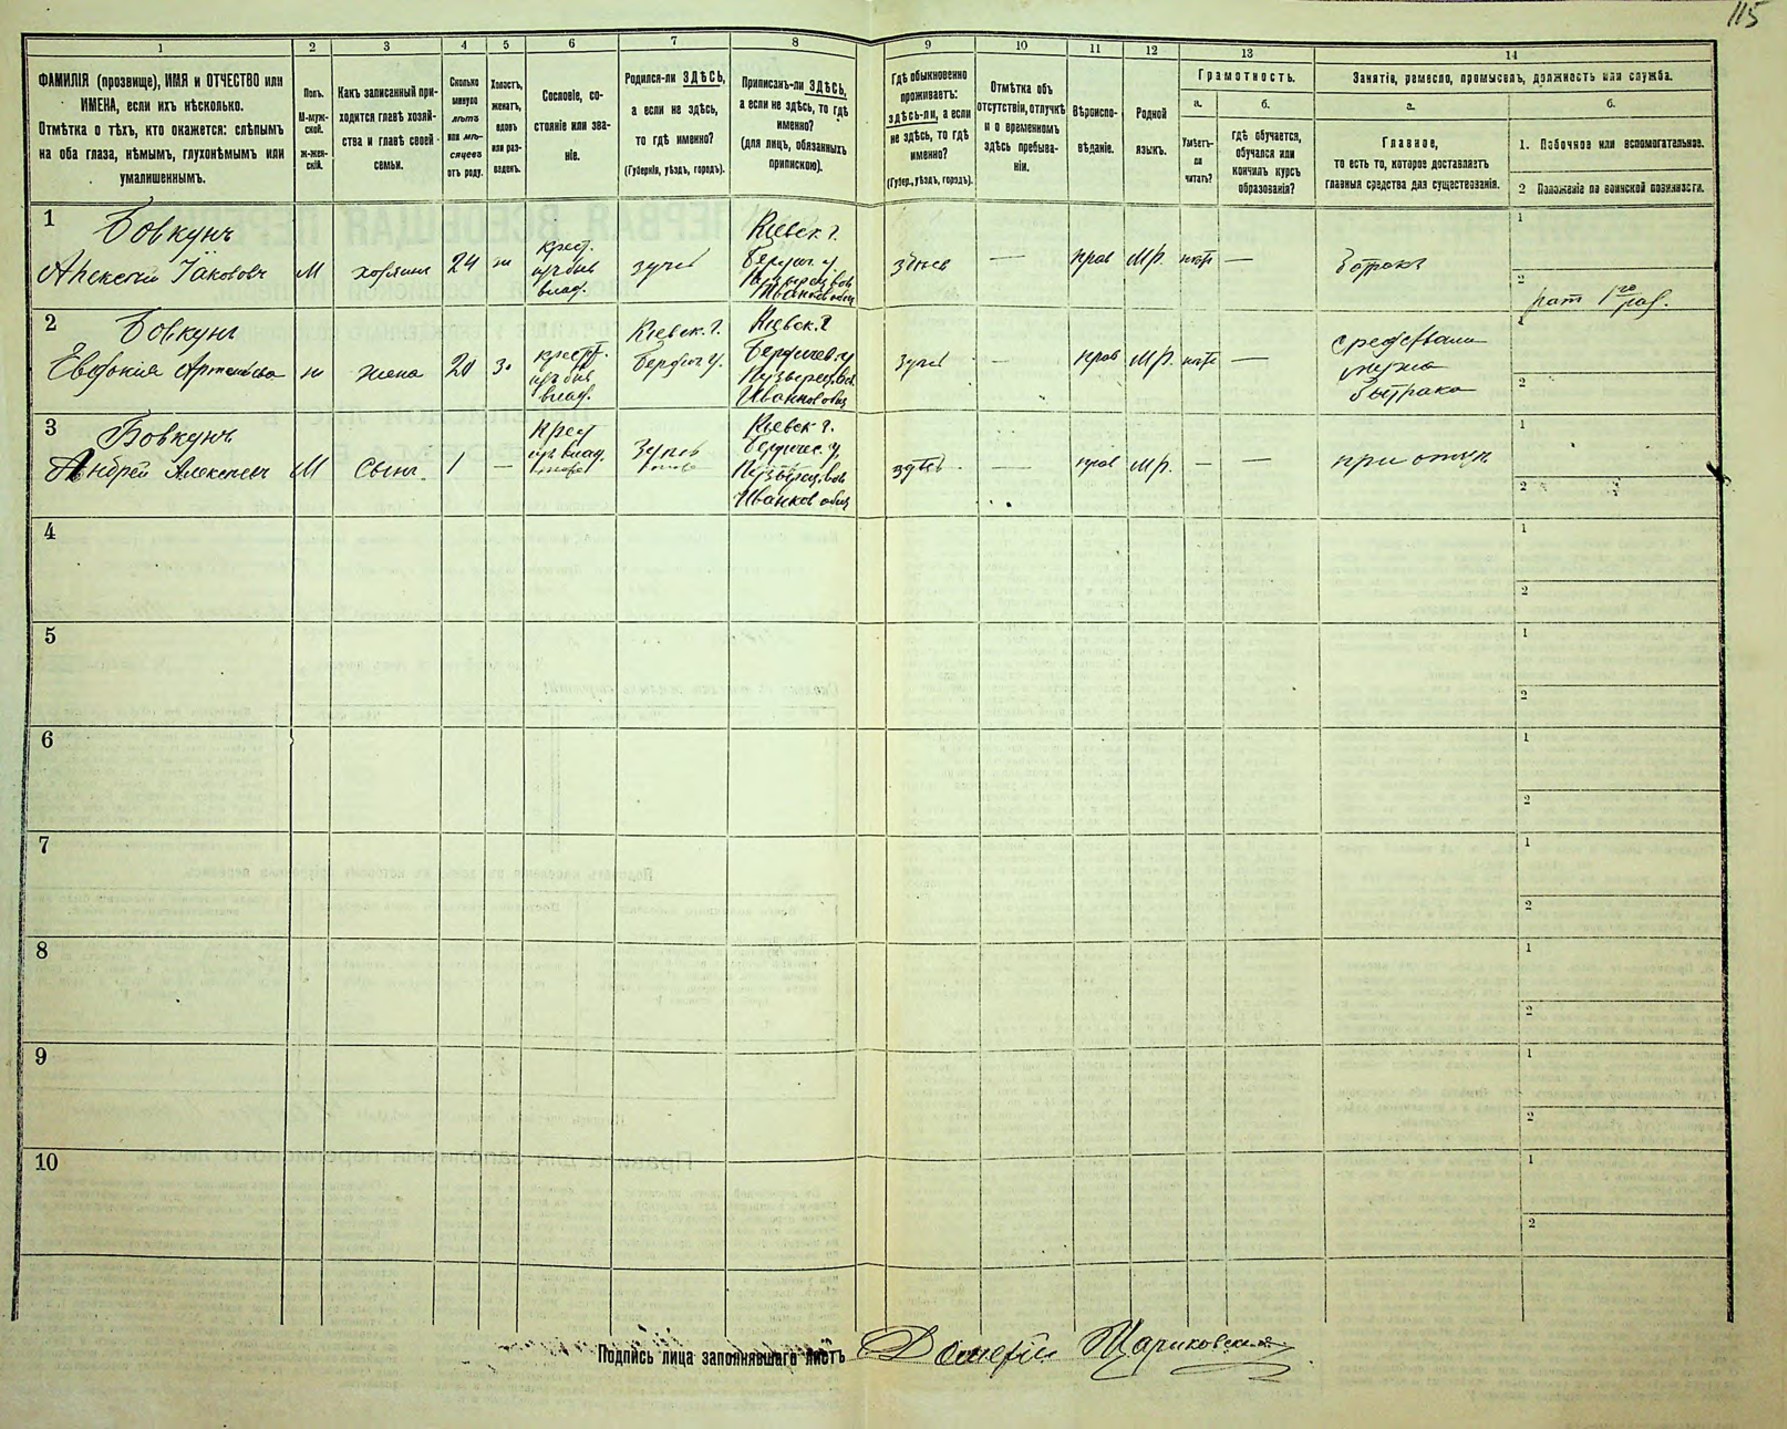 115
1
2
3
4
5
6
7
8
9
10
11
12
13
14
ФАМИЛІЯ (прозвище), ИМЯ и ОТЧЕСТВО или
ИМЕНА, если ихъ нѣсколько.
Отмѣтка о тѣхъ, кто окажется: слѣпымъ
на оба глаза, нѣмымъ, глухонѣмымъ или
умалишеннымъ.
Полъ.
М-муж-
ской.
ж-жен-
скій.
Какъ записанный при-
ходится главѣ хозяй-
ства и главѣ своей
семьи.
Сколько
минуло
лѣтъ
или мѣ-
сяцевъ
отъ роду.
Холостъ,
женатъ,
вдовъ
или раз-
веденъ.
Сословіе, со-
стояніе или зва-
ніе.
Родился-ли ЗДѢСЬ,
а если не здѣсь,
то гдѣ именно?
(Губернія, уѣздъ, городъ).
Приписанъ-ли ЗДѢСЬ,
а если не здѣсь, то гдѣ
именно?
(для лицъ, обязанныхъ
припискою).
Гдѣ обыкновенно
проживаетъ:
здѣсь-ли, а если
не здѣсь, то гдѣ
именно?
(Губер., уѣздъ, городъ).
Отмѣтка объ
отсутствіи, отлучкѣ
и о временномъ
здѣсь пребыва-
ніи.
Вѣроиспо-
вѣданіе.
Родной
языкъ.
Грамотность.
а.
б.
Умѣетъ-
ли
читать?
гдѣ обучается,
обучался или
кончилъ курсъ
образованія?
Занятіе, ремесло, промыселъ, должность или служба.
а.
б.
Главное,
то есть то, которое доставляетъ
главныя средства для существованія.
1. Побочное или вспомогательное.
2 Положеніе по воинской повинности.
1
Бовкунъ
Алексѣй Іакововъ
М
хозяинъ
24
ж
крест.
изъ быв
влад.
здѣсь
Кіевск. г.
Бердич. у
Пузырец. вол
Иванков общ
здѣсь
—
прав
Мр.
нѣтъ
—
Батракъ
1
2
рат 1го раз.
2
Бовкунъ
Евдокія Артемьева
ж
жена
20
з.
крест.
изъ быв
влад.
Кіевск. г.
Бердич у.
Кіевск. г
Бердичев. у
Пузырец. вол
Иванков общ
здѣсь
—
прав
Мр.
нѣтъ
—
средствами
мужа
батрака
1
2
3
Бовкунъ
Андрей Алексѣевъ
М
Сынъ
1
—
Крест
изъ влад.
здѣсь
Кіевск г.
Бердичев. у
Пузырец. вол
Иванков общ
здѣсь
—
прав
Мр.
—
—
при отцѣ
1
2
4
1
2
5
1
2
6
1
2
7
1
2
8
1
2
9
1
2
10
1
2
Подпись лица заполнявшаго листъ